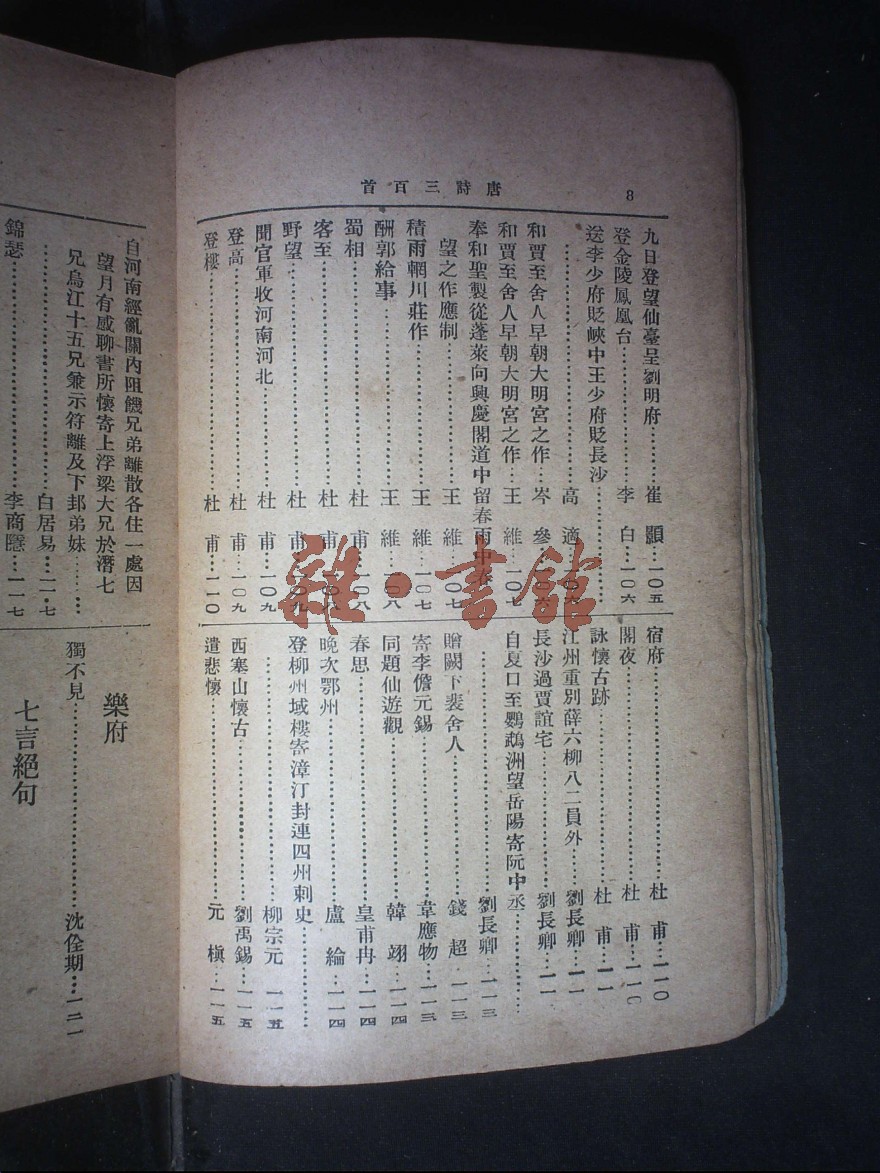 唐詩三百首
8
九日登望仙臺呈劉明府………崔顥…一〇五
登金陵鳳凰台………李白…一〇六
送李少府貶峽中王少府貶長沙
………高適…一〇六
和賈至舍人早朝大明宮之作…岑參
和賈至舍人早朝大明宮之作…王維…一〇七
奉和聖製從蓬萊向興慶閣道中留春雨中春
望之作應制………王維…一〇七
積雨輞川莊作………王維…一〇七
酬郭給事………王維…一〇八
蜀相………杜甫…一〇八
客至………杜甫…一〇八
野望………杜甫…一〇九
聞官軍收河南河北………杜甫…一〇九
登高………杜甫…一〇九
登樓………杜甫…一一〇
宿府………杜甫…一一〇
閣夜………杜甫…一一〇
詠懷古跡………杜甫…一一
江州重別薛六柳八二員外…劉長卿…一一
長沙過賈誼宅………劉長卿…一一
自夏口至鸚鵡洲望岳陽寄阮中丞………
………劉長卿…一一三
贈闕下裴舍人………錢超…一一三
寄李儋元錫………韋應物…一一三
同題仙遊觀………韓翊…一一四
春思………皇甫冉…一一四
晚次鄂州………盧綸…一一四
登柳州域樓寄漳汀封連四州刺史………
………柳宗元…一一五
西塞山懷古………劉禹錫…一一五
遣悲懷………元槇…一一五
自河南經亂關內阻饑兄弟離散各住一處因
望月有感聊書所懷寄上浮梁大兄於潛七
兄烏江十五兄兼示符離及下邽弟妹………
………白居易…一一七
錦瑟………李商隱…一一七
樂府
獨不見………沈佺期…一二一
七言絕句
雜·書館